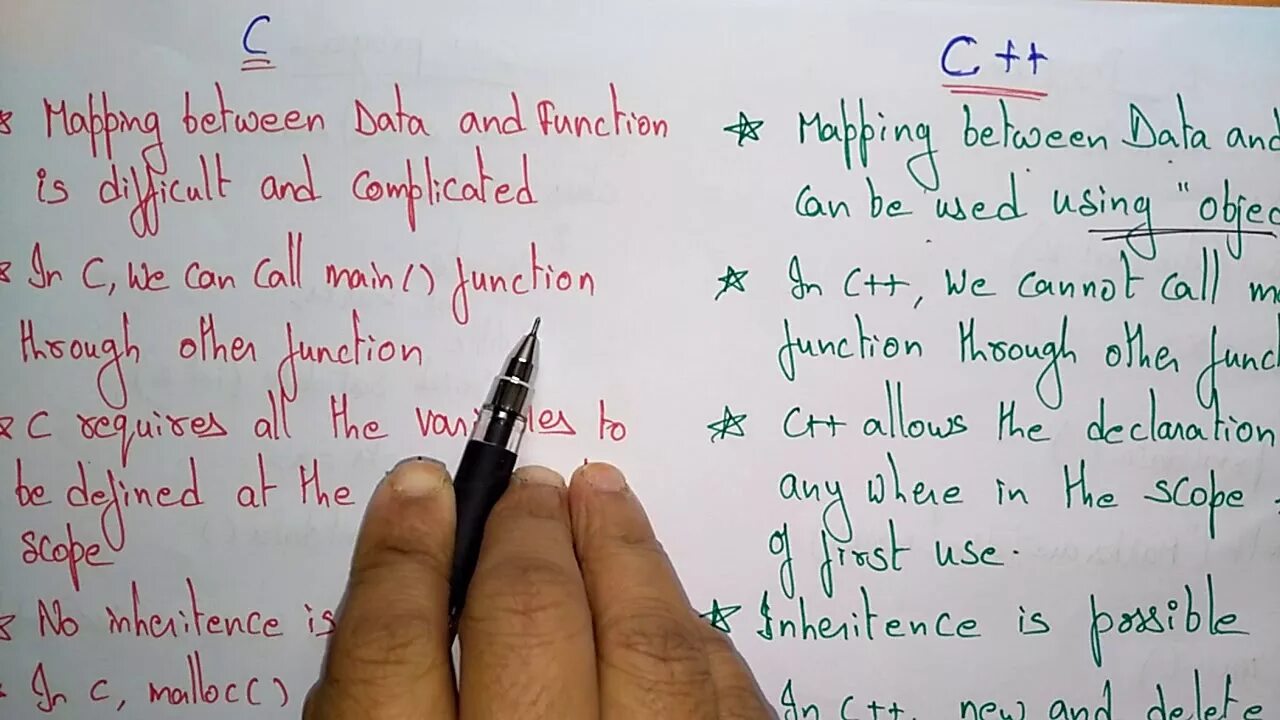 C
Mapping between Data and Function
is difficult and complicated
In C, We can call main() function
through other function
C requires all the variables to
be defined at the
scope
No inheritence is
In C, malloc()
C++
Mapping between Data and
can be used using "objec
In C++, We cannot call
function through other func
C++ allows the declaration
any where in the scope
of first use.
Inheritence is possible
In C++, new and delete